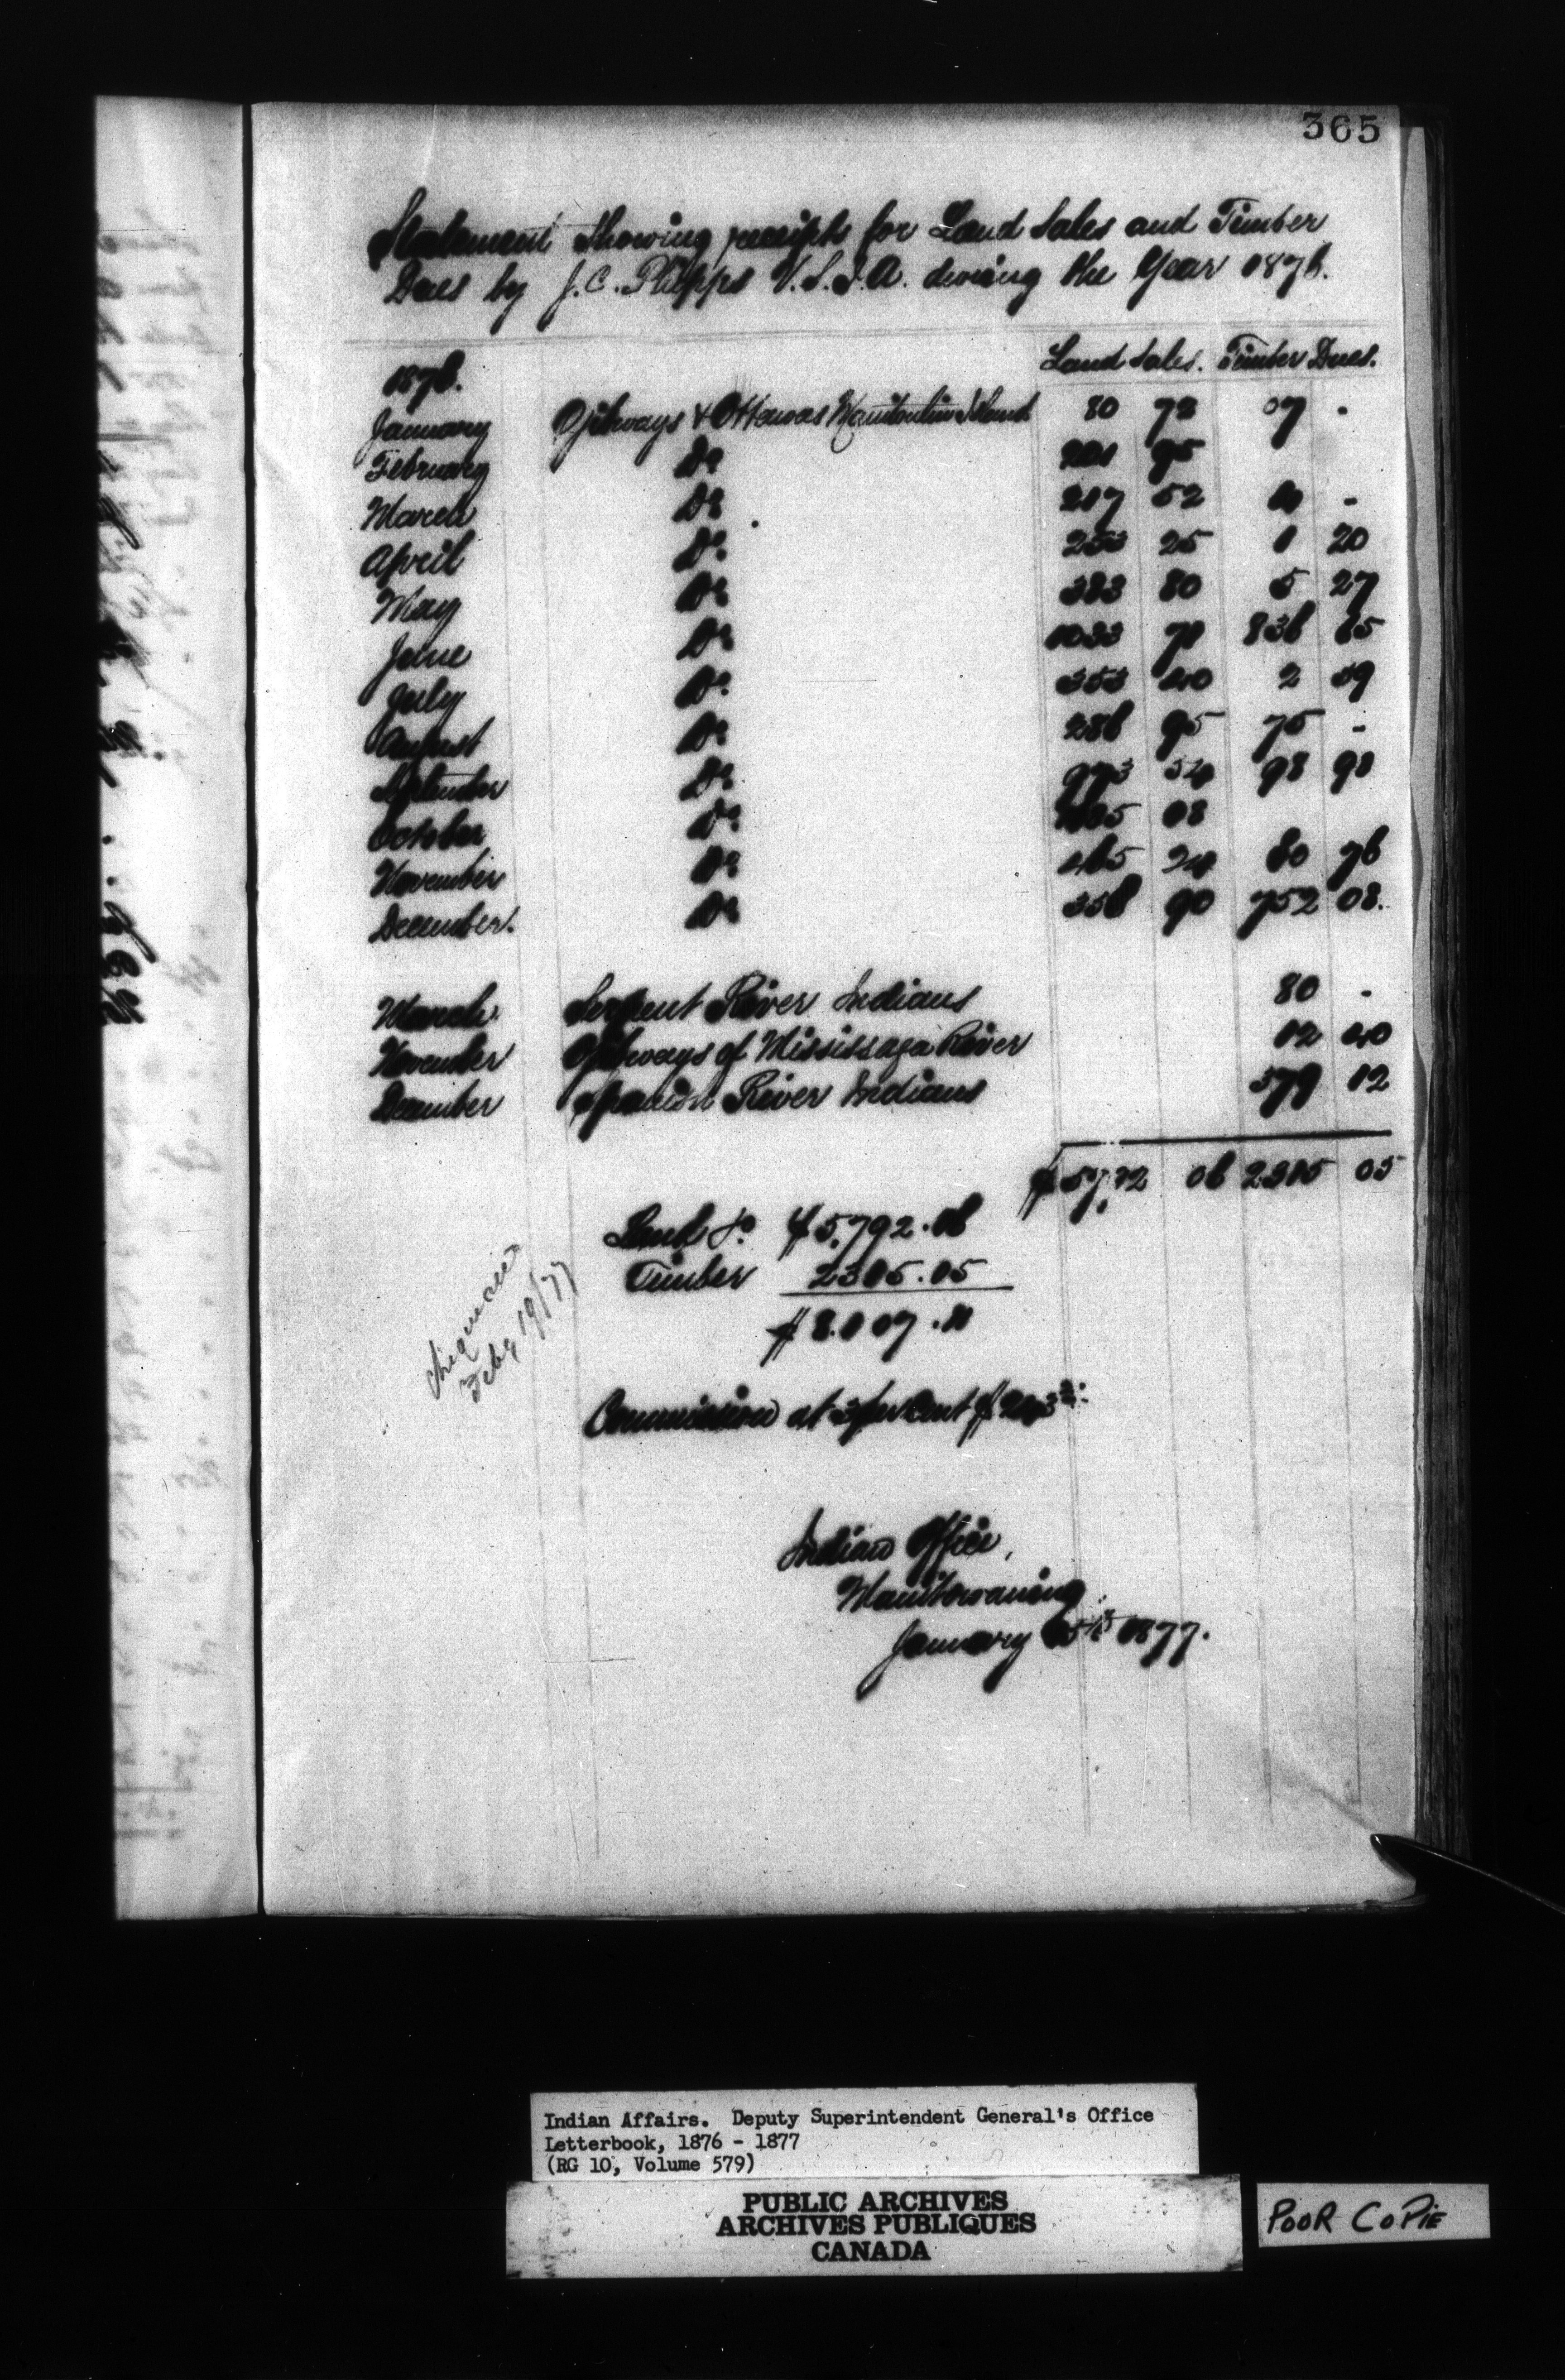 365
Statement Showing receipts for Land Sales and Timber
Dues by J. C. Phipps V. S. I. A. during the Year 1876.
Land Sales. Timber Dues.
1876.
January Ojibways & Ottawas Manitoulin Island 80 72 17 -
February Do 201 95
March Do 217 52 4 -
April Do 253 25 1 20
May Do 383 80 5 27
June Do 1033 71 836 65
July Do 353 40 2 59
August Do 286 95 75 -
September Do 973 54 98 98
October Do 1185 08
November Do 465 24 60 76
December. Do 356 90 752 08.
March Serpent River Indians 80 -
November Ojibways of Mississaga River 12 40
December Spanish River Indians 379 12
$ 5792 06 2305 05
Land So $5,792.06
Timber 2305.05
$8.097.11
Commission at 3 per Cent $243
Feby 19/77
Indian Office,
Manitowaning
January 15th 1877.
Indian Affairs. Deputy Superintendent General's Office
Letterbook, 1876 - 1877
(RG 10, Volume 579)
PUBLIC ARCHIVES
ARCHIVES PUBLIQUES
CANADA
POOR COPIE